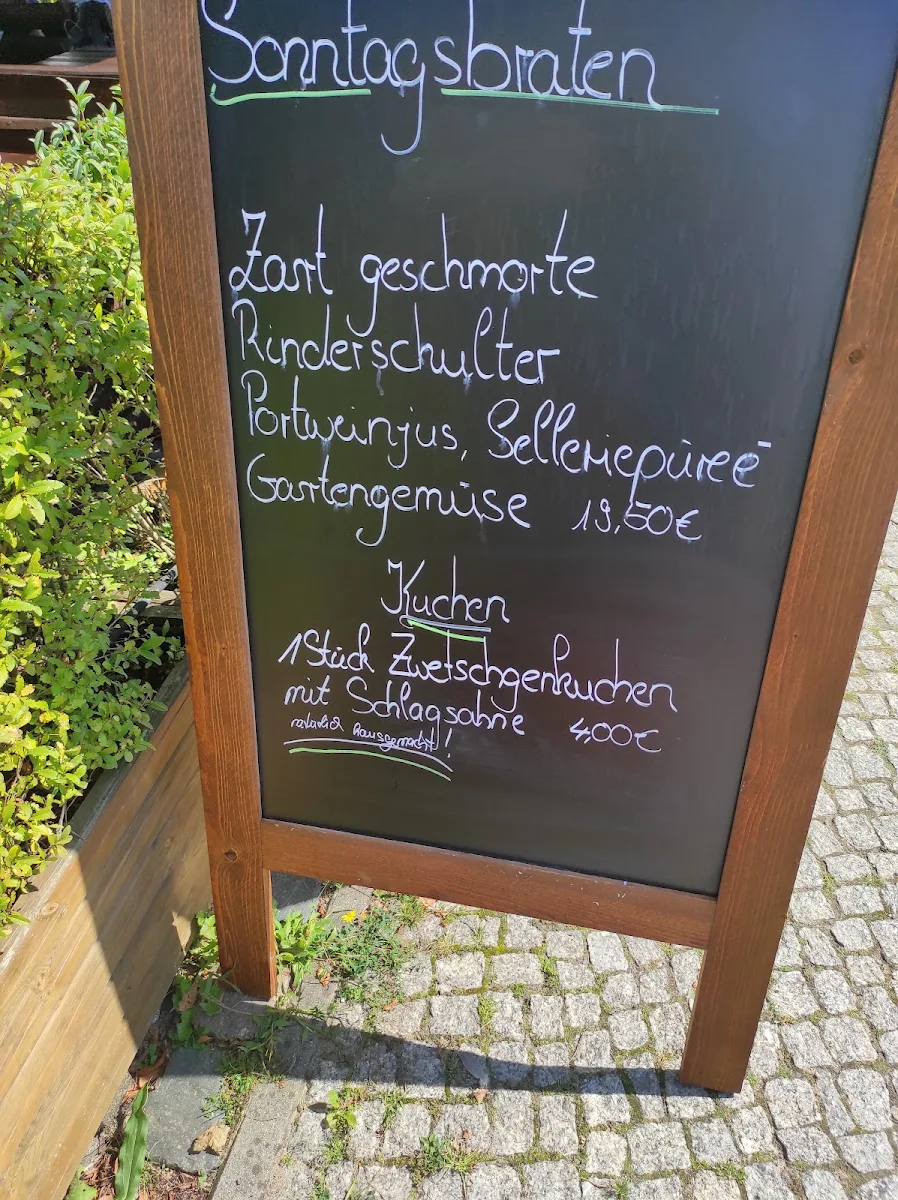 Sonntagsbraten
Zart geschmorte
Rinderschulter
Portweinjus, Selleriepüreé
Gartengemüse 19,50€
Kuchen
1 Stück Zwetschgenkuchen
mit Schlagsahne 4,00€
natürlich hausgemacht!